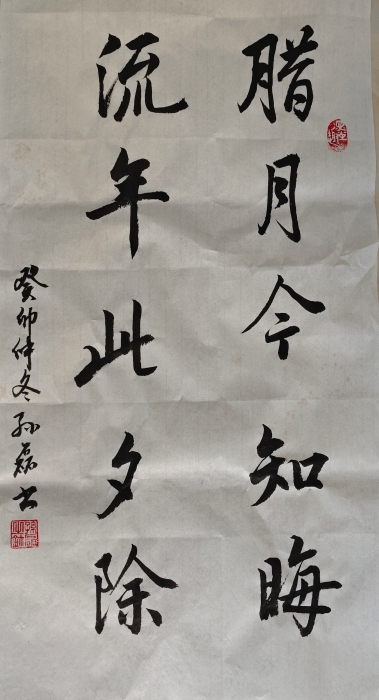 腊月今知晦
流年此夕除
癸卯仲冬孙磊书